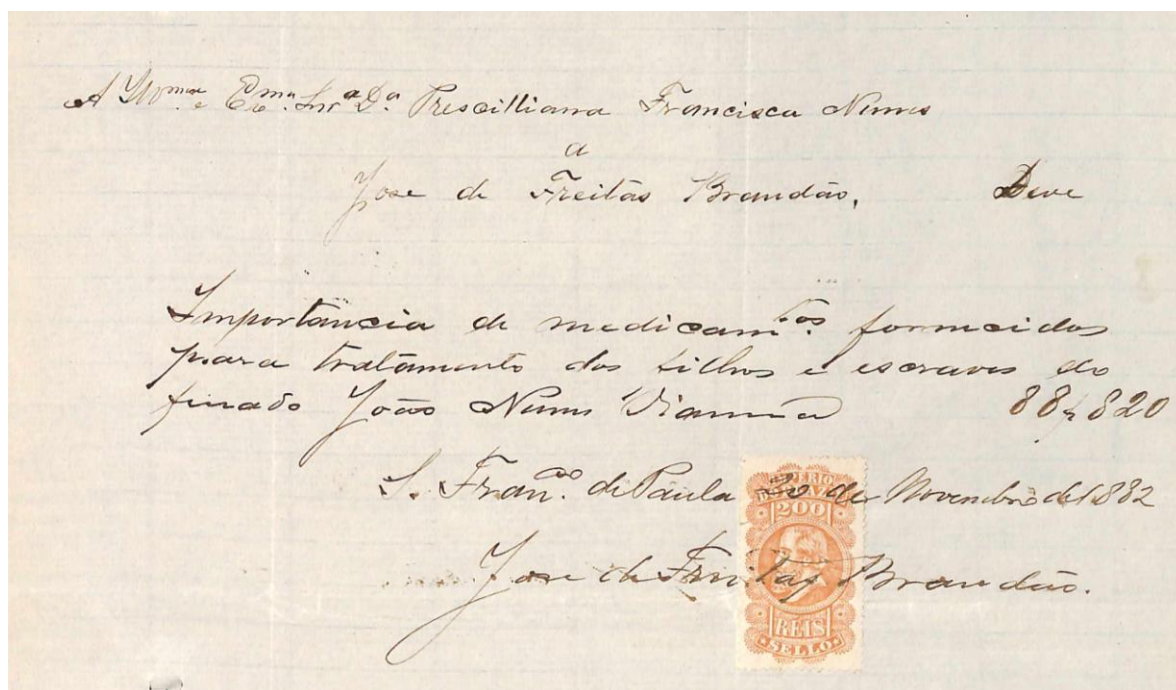 A Illma e Exma Snra Da Prescilliana Francisca Nunes
a
Jose de Freitas Brandão, Deve
Importancia de medicamtos fornecidos
para tratamento dos filhos e escravos do
finado João Nunes Vianna 88$820
S. Franco de Paula 30 de Novembro de 1882
IMPERIO
DO BRAZIL
200
Jose de Freitas Brandão.
REIS
SELLO